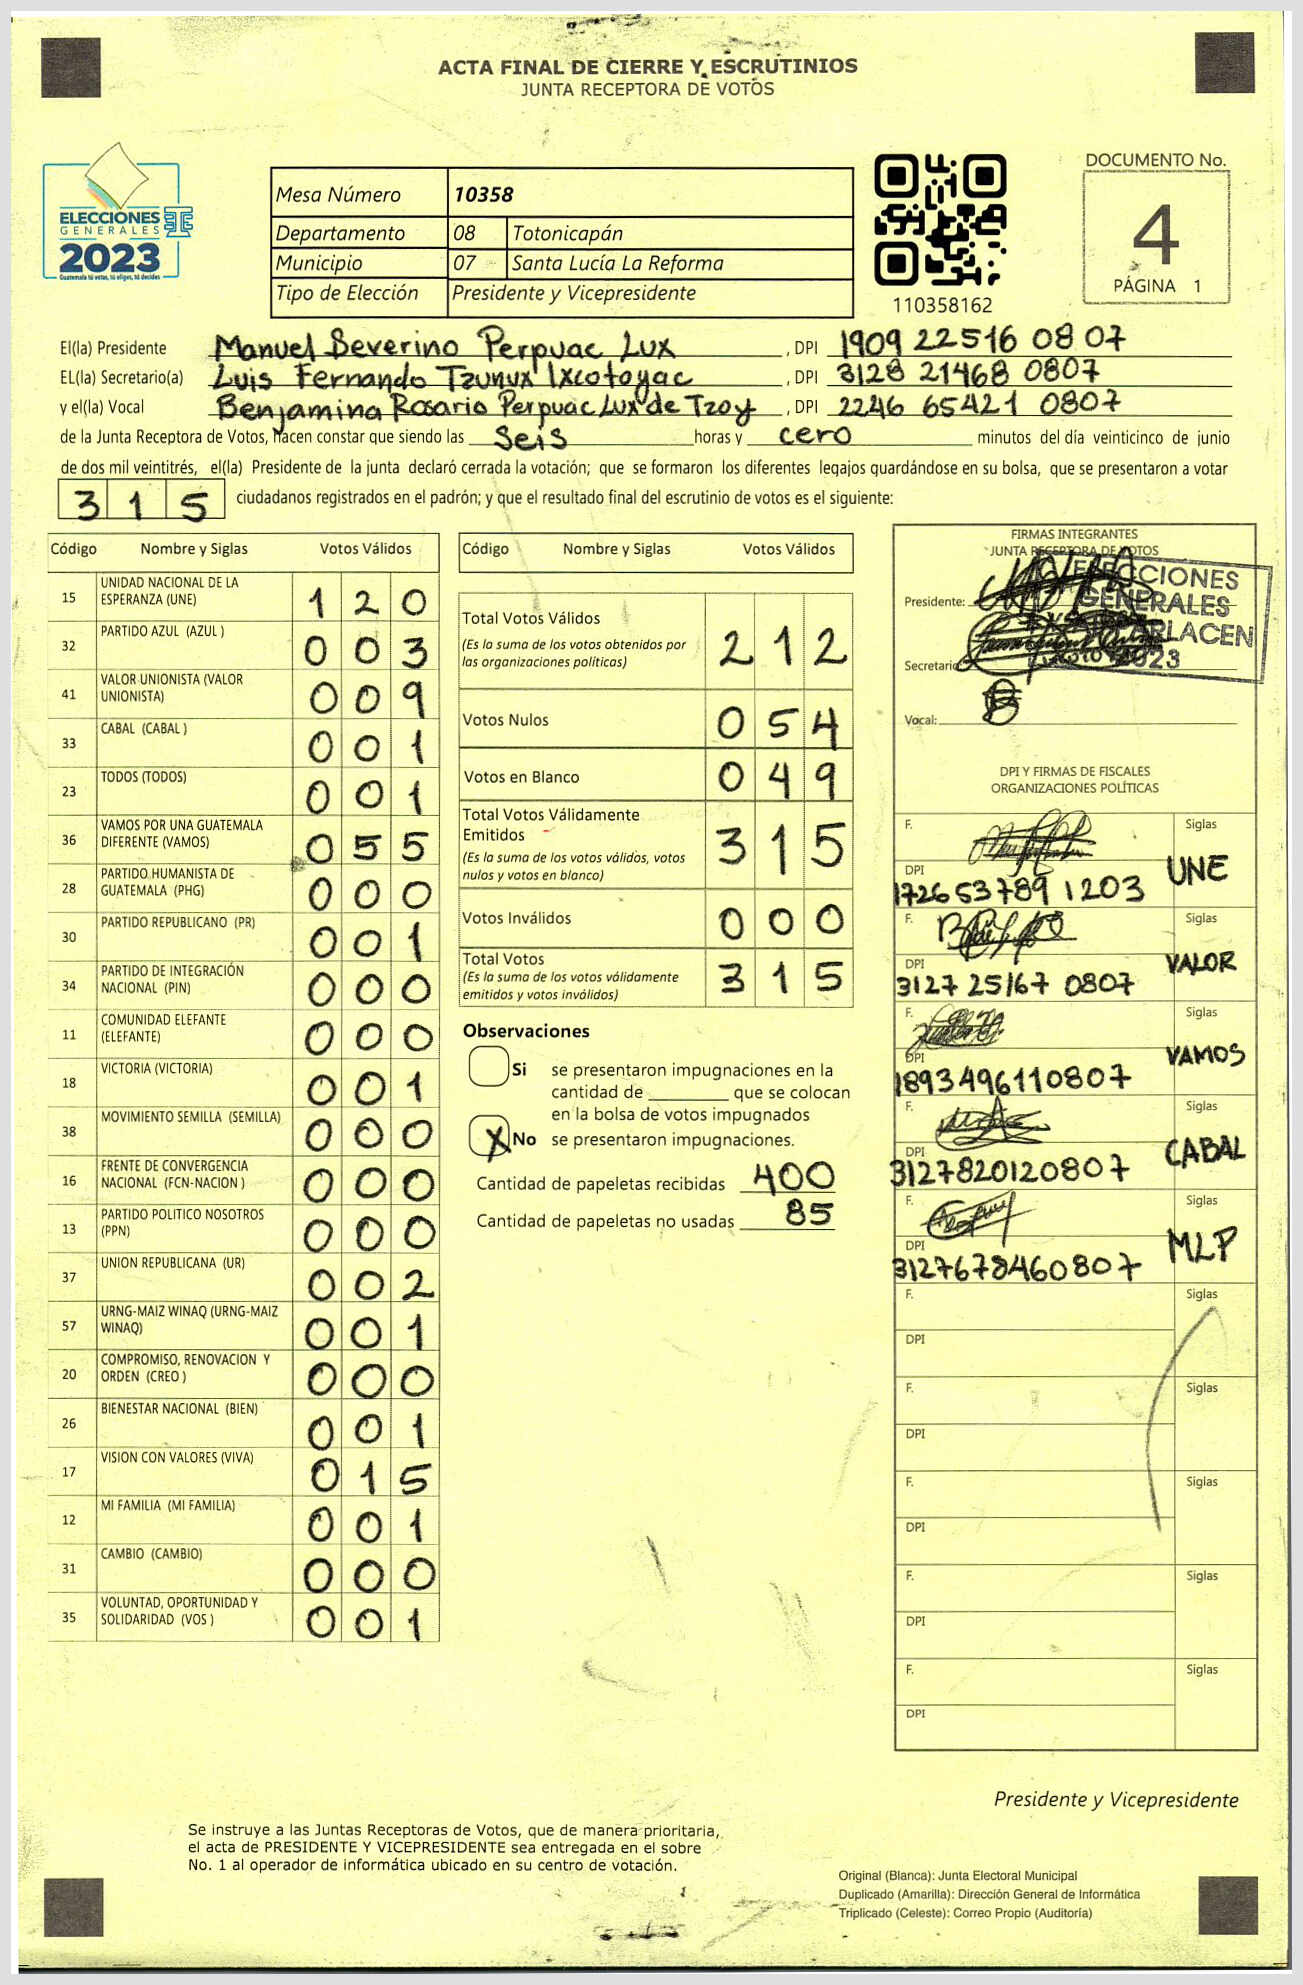 ACTA FINAL DE CIERRE Y ESCRUTINIOS
JUNTA RECEPTORA DE VOTOS
ELECCIONES
GENERALES
2023
Guatemala tú votas, tú eliges, tú decides
Mesa Número 10358
Departamento 08 Totonicapán
Municipio 07 Santa Lucía La Reforma
Tipo de Elección Presidente y Vicepresidente
110358162
DOCUMENTO No.
4
PÁGINA 1
El(la) Presidente Manuel Severino Perpuac Lux , DPI 1909 22516 0807
EL(la) Secretario(a) Luis Fernando Tzunux Ixcotoyac , DPI 3128 21468 0807
y el(la) Vocal Benjamina Rosario Perpuac Lux de Tzoy , DPI 2246 65421 0807
de la Junta Receptora de Votos, hacen constar que siendo las seis horas y cero minutos del día veinticinco de junio
de dos mil veintitrés, el(la) Presidente de la junta declaró cerrada la votación; que se formaron los diferentes legajos guardándose en su bolsa, que se presentaron a votar
315 ciudadanos registrados en el padrón; y que el resultado final del escrutinio de votos es el siguiente:
Código Nombre y Siglas Votos Válidos
15 UNIDAD NACIONAL DE LA
ESPERANZA (UNE) 120
32 PARTIDO AZUL (AZUL ) 003
41 VALOR UNIONISTA (VALOR
UNIONISTA) 009
33 CABAL (CABAL ) 001
23 TODOS (TODOS) 001
36 VAMOS POR UNA GUATEMALA
DIFERENTE (VAMOS) 055
28 PARTIDO HUMANISTA DE
GUATEMALA (PHG) 000
30 PARTIDO REPUBLICANO (PR) 001
34 PARTIDO DE INTEGRACIÓN
NACIONAL (PIN) 000
11 COMUNIDAD ELEFANTE
(ELEFANTE) 000
18 VICTORIA (VICTORIA) 001
38 MOVIMIENTO SEMILLA (SEMILLA) 000
16 FRENTE DE CONVERGENCIA
NACIONAL (FCN-NACION ) 000
13 PARTIDO POLITICO NOSOTROS
(PPN) 000
37 UNION REPUBLICANA (UR) 002
57 URNG-MAIZ WINAQ (URNG-MAIZ
WINAQ) 001
20 COMPROMISO, RENOVACION Y
ORDEN (CREO ) 000
26 BIENESTAR NACIONAL (BIEN) 001
17 VISION CON VALORES (VIVA) 015
12 MI FAMILIA (MI FAMILIA) 001
31 CAMBIO (CAMBIO) 000
35 VOLUNTAD, OPORTUNIDAD Y
SOLIDARIDAD (VOS ) 001
Código Nombre y Siglas Votos Válidos
Total Votos Válidos
(Es la suma de los votos obtenidos por
las organizaciones políticas) 212
Votos Nulos 054
Votos en Blanco 049
Total Votos Válidamente
Emitidos
(Es la suma de los votos válidos, votos
nulos y votos en blanco) 315
Votos Inválidos 000
Total Votos
(Es la suma de los votos válidamente
emitidos y votos inválidos) 315
Observaciones
Si se presentaron impugnaciones en la
cantidad de ________ que se colocan
en la bolsa de votos impugnados
X No se presentaron impugnaciones.
Cantidad de papeletas recibidas 400
Cantidad de papeletas no usadas 85
FIRMAS INTEGRANTES
JUNTA RECEPTORA DE VOTOS
ELECCIONES
GENERALES
PARLACEN
2023
Presidente:
Secretario
Vocal:
DPI Y FIRMAS DE FISCALES
ORGANIZACIONES POLÍTICAS
F. Siglas
UNE
DPI
172653789 1203
F. Siglas
VALOR
DPI
3127 25167 0807
F. Siglas
VAMOS
DPI
1893496110807
F. Siglas
CABAL
DPI
3127820120807
F. Siglas
MLP
DPI
3127678460807
F. Siglas
DPI
F. Siglas
DPI
F. Siglas
DPI
F. Siglas
DPI
F. Siglas
DPI
Presidente y Vicepresidente
Se instruye a las Juntas Receptoras de Votos, que de manera prioritaria,
el acta de PRESIDENTE Y VICEPRESIDENTE sea entregada en el sobre
No. 1 al operador de informática ubicado en su centro de votación.
Original (Blanca): Junta Electoral Municipal
Duplicado (Amarilla): Dirección General de Informática
Triplicado (Celeste): Correo Propio (Auditoría)